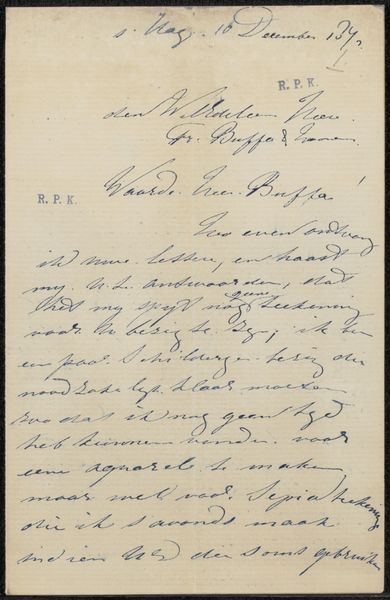 s. Hag. 16 December 187
R. P. K.
den Heer
Fr. Buffa & Zonen
R. P. K.
Waarde Heer Buffa!
Zoo even ontvang
ik uwe letteren, en haast
my U te antwoorden, dat
het my spyt nog geene teekening
voor U bezig te zyn; ik ben
een paar Schilderyen bezig die
noodzakelyk klaar moeten
zoo dat ik nog geen tyd
heb kunnen vinden voor
eene aquarele te maken
maar wel voor Sepia teekening
die ik s'avonds maak
indien U die soms gebruiken